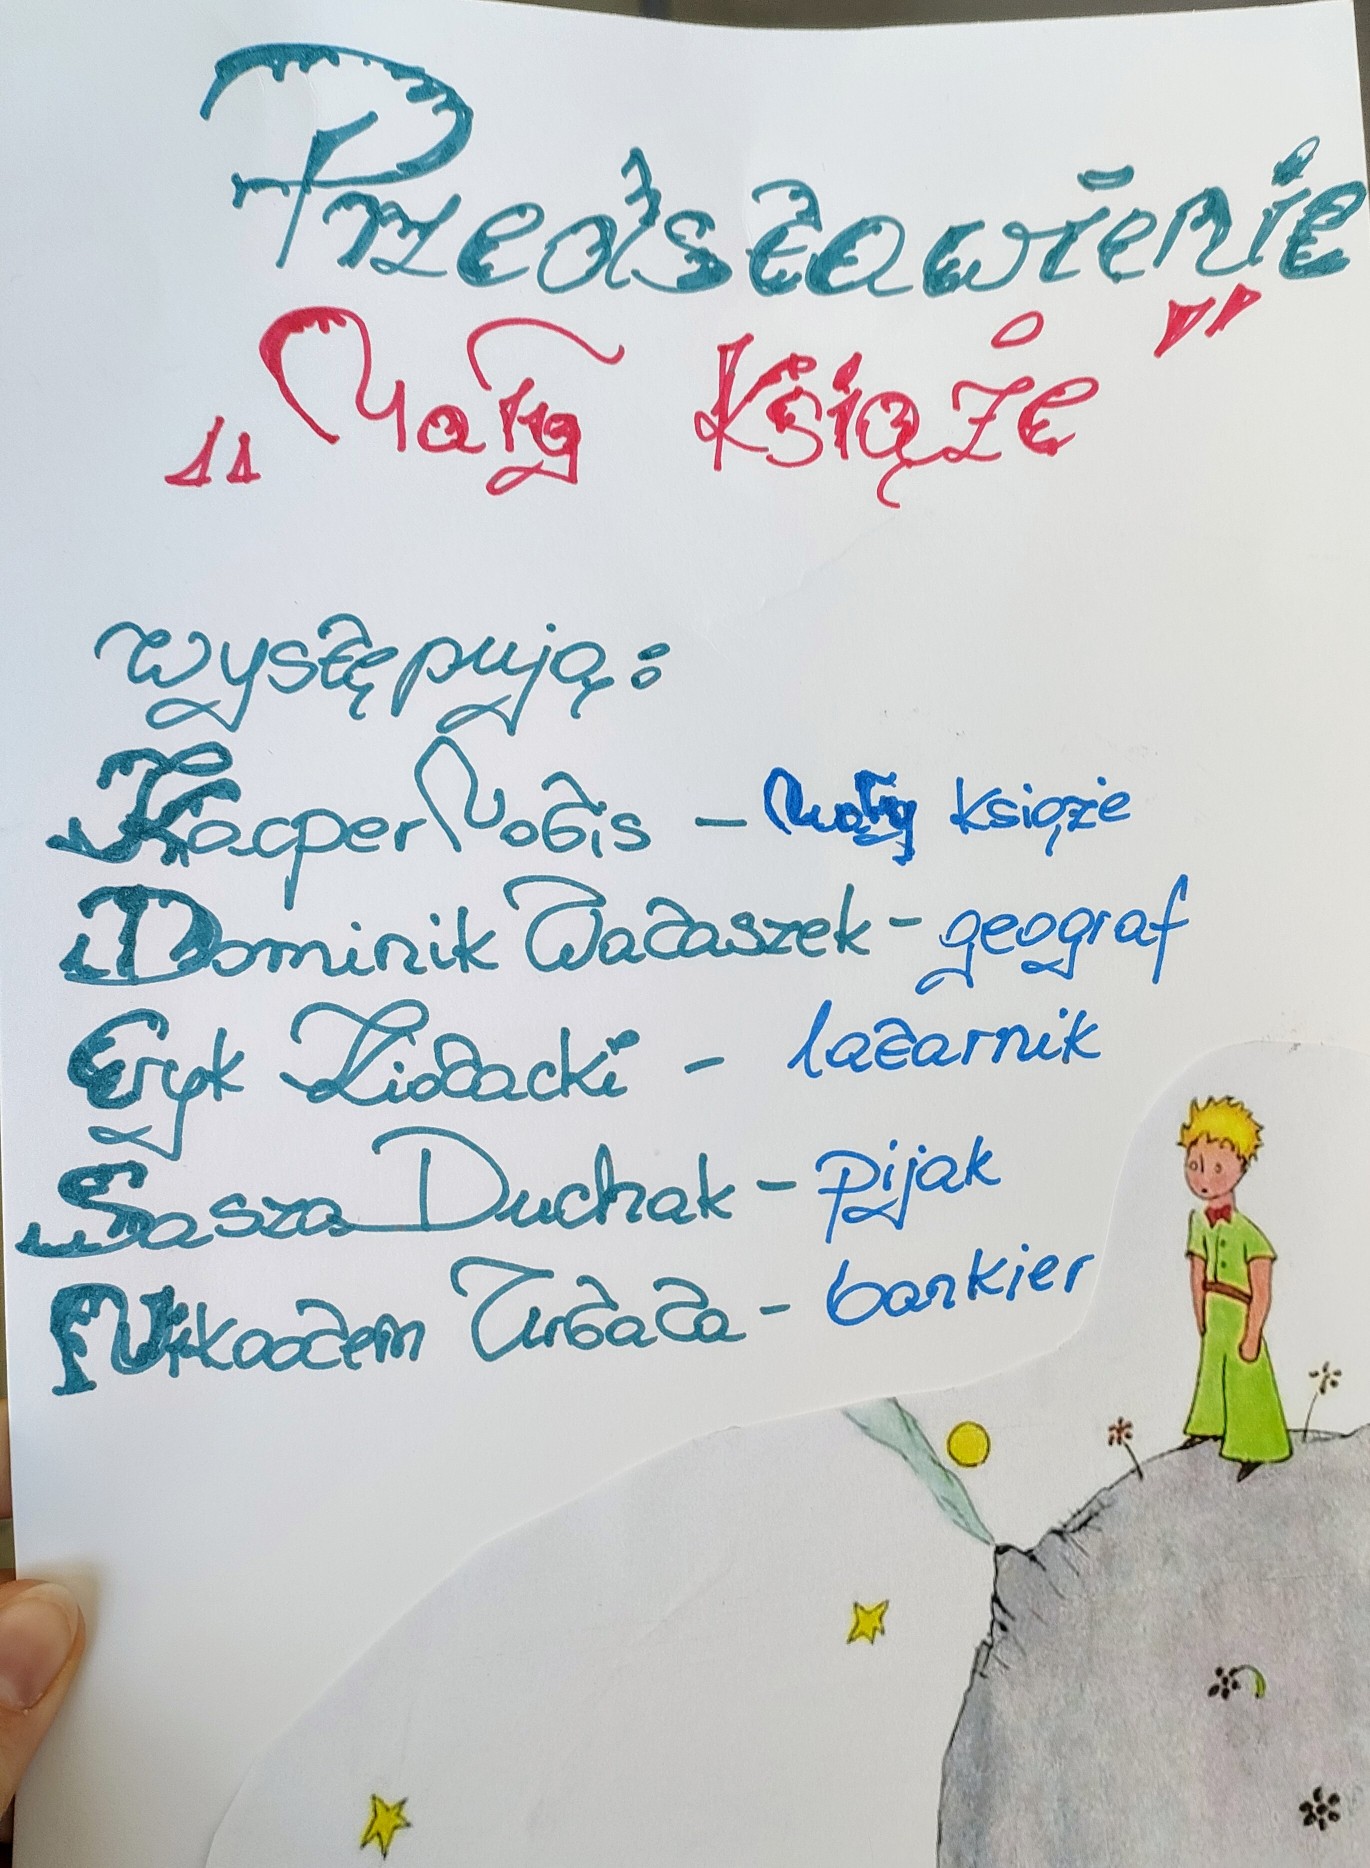 Przedstawienie
„Mały Książe"
występują:
Kacper Nobis – Mały książe
Dominik Wataszek – geograf
Eryk – latarnik
Sasza Duchak – pijak
Nikodem – bankier